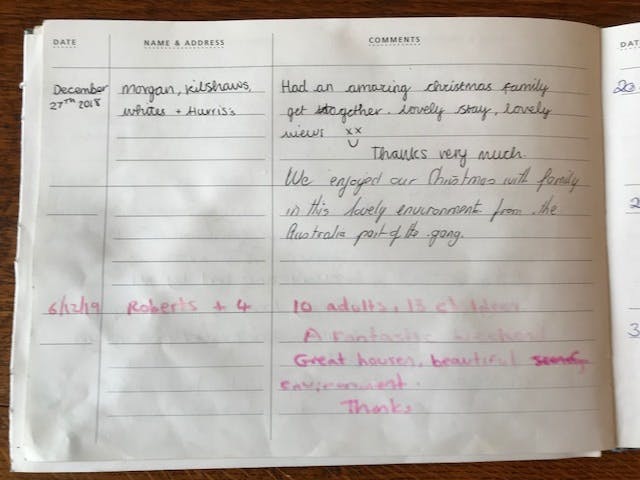 DATE NAME & ADDRESS COMMENTS
December 27TH 2018 Morgan, Kilshaws, Whites + Harris's
Had an amazing christmas family
get together. Lovely stay, lovely
views xx
Thanks very much.
We enjoyed our Christmas with family
in this lovely environment from the
Australia part of the gang.
6/12/19 Roberts + 4 10 adults, 13 children
A Fantastic weekend
Great houses, beautiful
environment.
Thanks
DAT
20
2
3